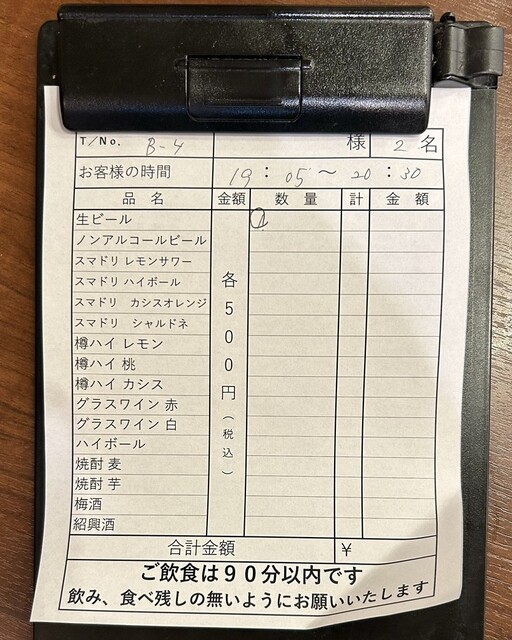 T/No. B-4 様 2 名
お客様の時間 19:05〜20:30
品 名 金額 数 量 計 金 額
生ビール 1
ノンアルコールビール
スマドリ レモンサワー
スマドリ ハイボール
スマドリ カシスオレンジ
スマドリ シャルドネ
樽ハイ レモン
樽ハイ 桃
樽ハイ カシス
グラスワイン 赤
グラスワイン 白
ハイボール
焼酎 麦
焼酎 芋
梅酒
紹興酒
各500円(税込)
合計金額 ¥
ご飲食は90分以内です
飲み、食べ残しの無いようにお願いいたします